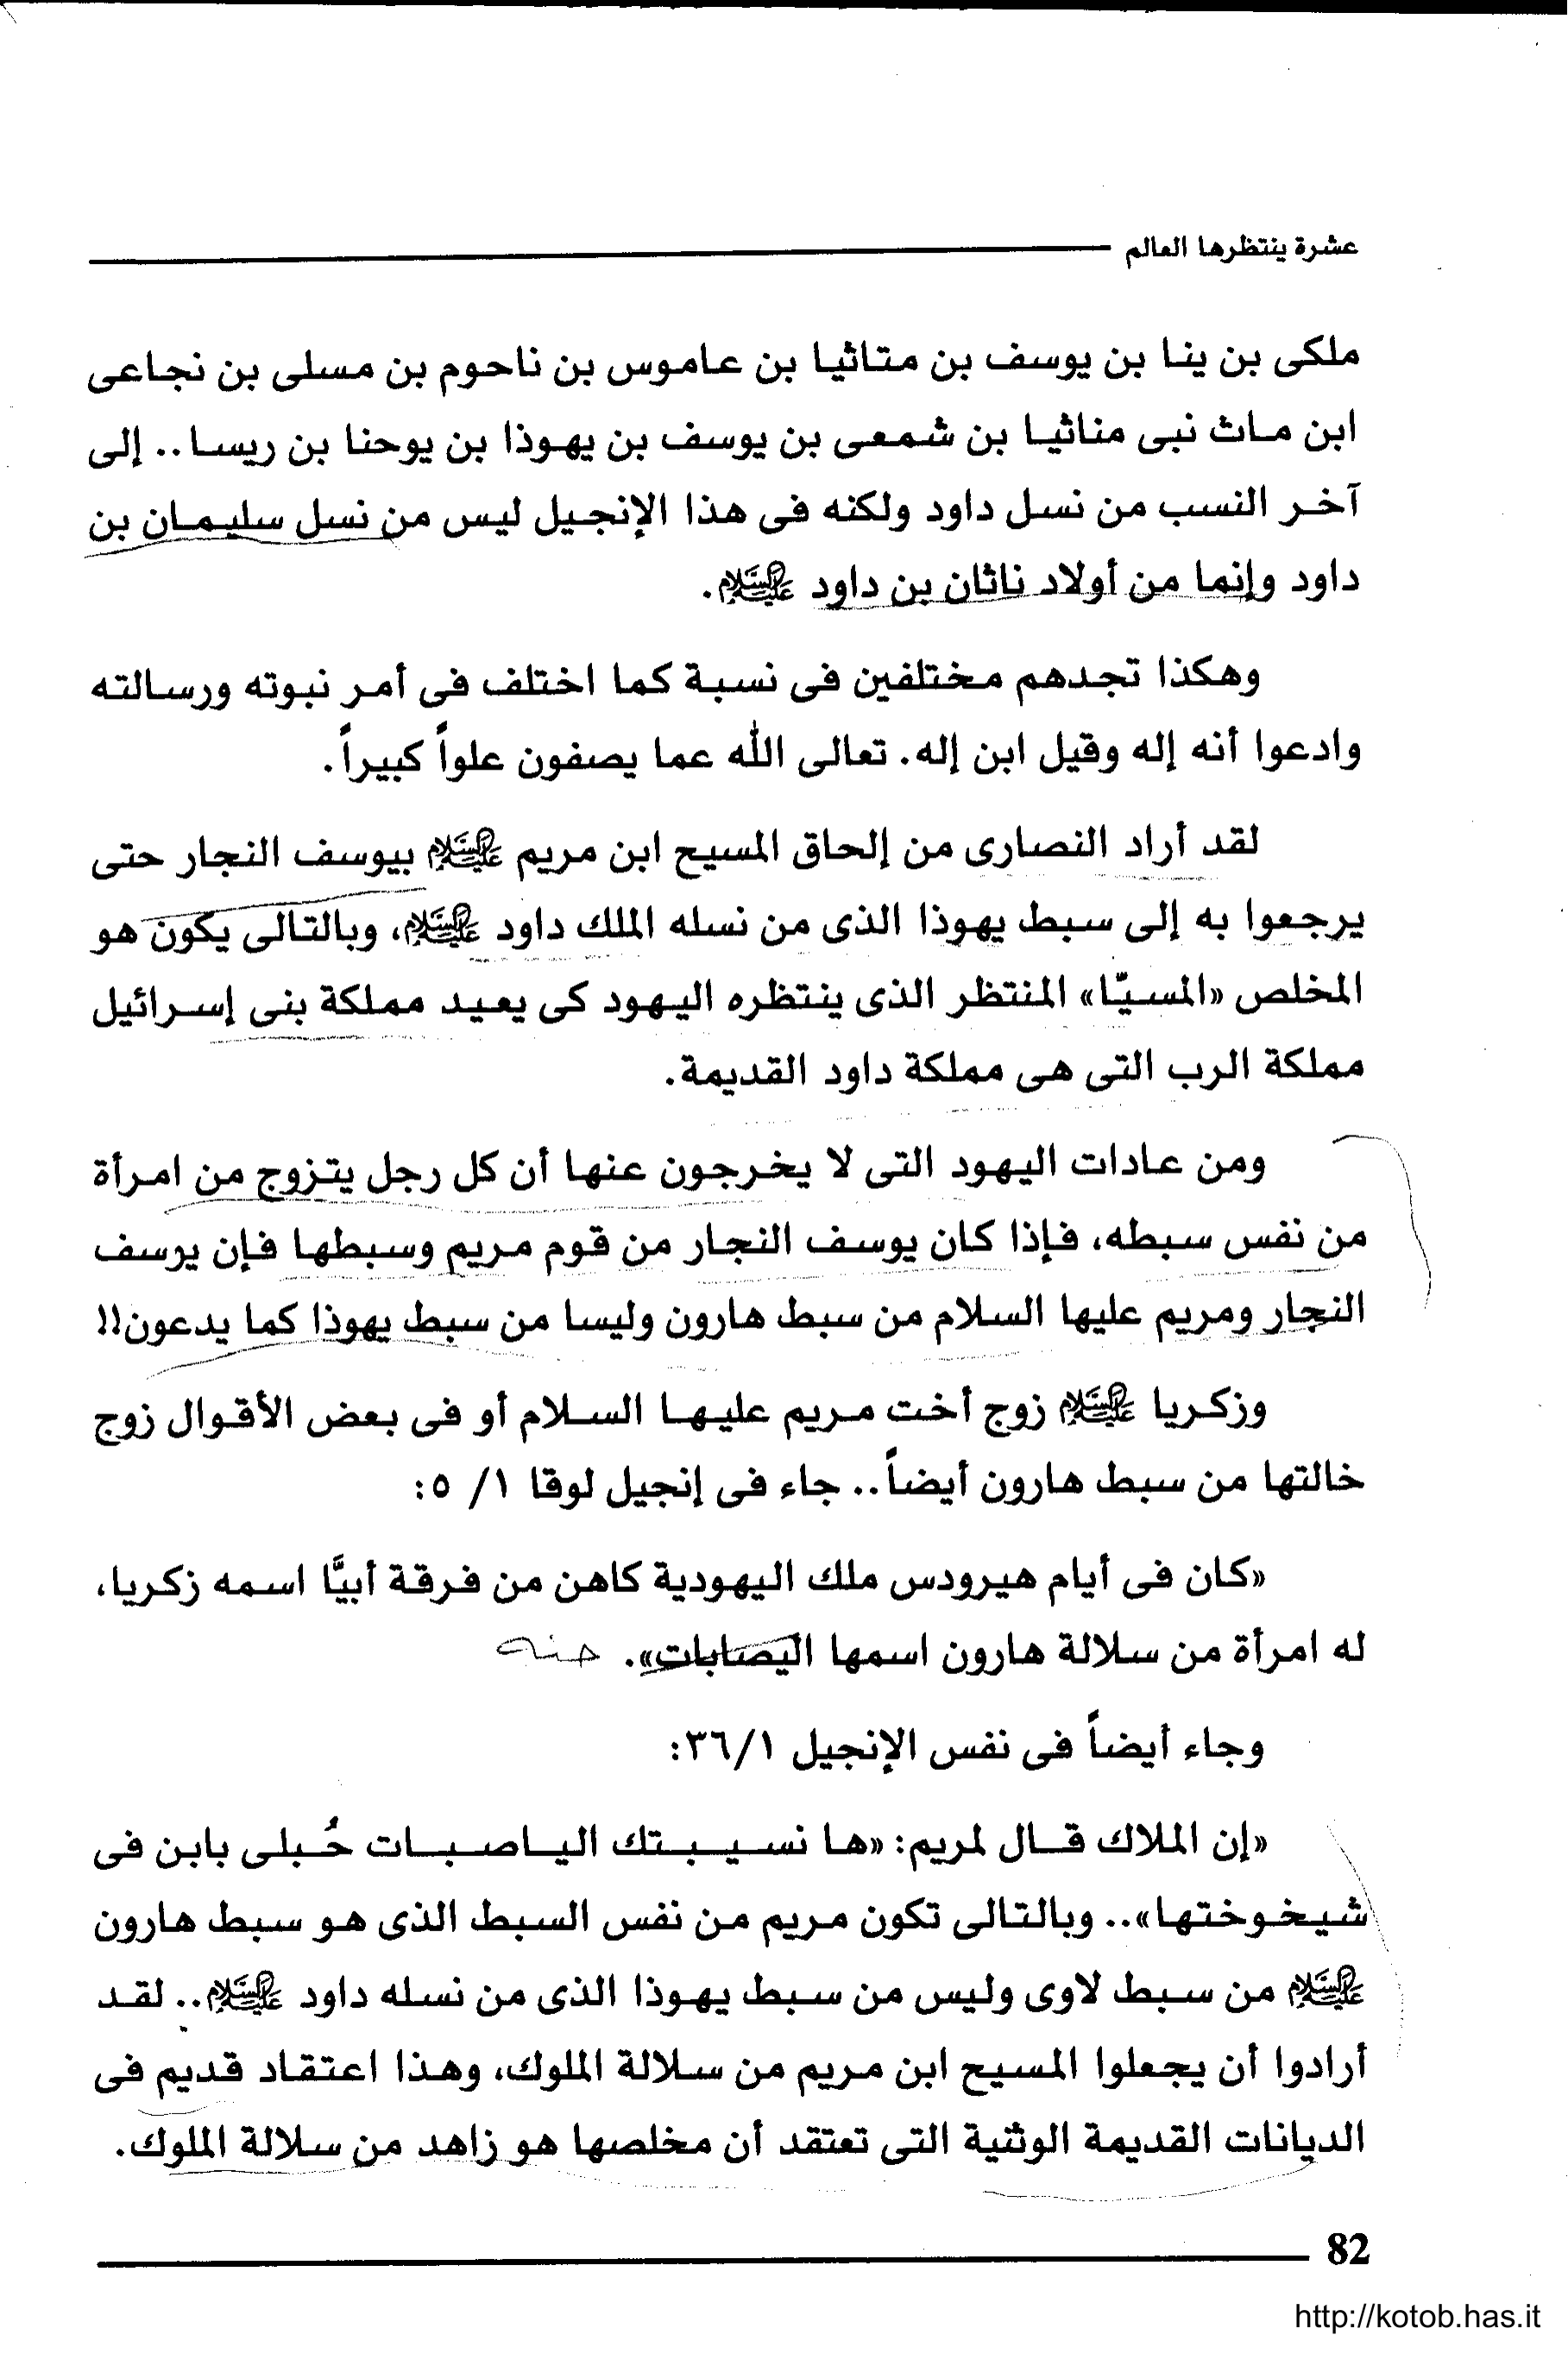 عشرة ينتظرها العالم
ملكى بن ينا بن يوسف بن متاثيا بن عاموس بن ناحوم بن مسلى بن نجاعى
ابن ماث نبى مناثيا بن شمعى بن يوسف بن يهوذا بن يوحنا بن ريسا.. إلى
آخر النسب من نسل داود ولكنه فى هذا الإنجيل ليس من نسل سليمان بن
داود وإنما من أولاد ناثان بن داود عليه السلام.
وهكذا تجدهم مختلفين فى نسبة كما اختلف فى أمر نبوته ورسالته
وادعوا أنه إله وقيل ابن إله. تعالى الله عما يصفون علواً كبيراً.
لقد أراد النصارى من إلحاق المسيح ابن مريم عليه السلام بيوسف النجار حتى
يرجعوا به إلى سبط يهوذا الذى من نسله الملك داود عليه السلام، وبالتالى يكون هو
المخلص «المسيّا» المنتظر الذى ينتظره اليهود كى يعيد مملكة بنى إسرائيل
مملكة الرب التى هى مملكة داود القديمة.
ومن عادات اليهود التى لا يخرجون عنها أن كل رجل يتزوج من امرأة
من نفس سبطه، فإذا كان يوسف النجار من قوم مريم وسبطها فإن يرسف
النجار ومريم عليها السلام من سبط هارون وليسا من سبط يهوذا كما يدعون!!
وزكريا عليه السلام زوج أخت مريم عليها السلام أو فى بعض الأقوال زوج
خالتها من سبط هارون أيضاً.. جاء فى إنجيل لوقا ١/ ٥:
«كان فى أيام هيرودس ملك اليهودية كاهن من فرقة أبيَّا اسمه زكريا،
له امرأة من سلالة هارون اسمها اليصابات». حنه
وجاء أيضاً فى نفس الإنجيل ٣٦/١:
«إن الملاك قال لمريم: «ها نسيبتك الياصبات حُبلى بابن فى
شيخوختها».. وبالتالى تكون مريم من نفس السبط الذى هو سبط هارون
عليه السلام من سبط لاوى وليس من سبط يهوذا الذى من نسله داود عليه السلام.. لقد
أرادوا أن يجعلوا المسيح ابن مريم من سلالة الملوك، وهذا اعتقاد قديم فى
الديانات القديمة الوثنية التى تعتقد أن مخلصها هو زاهد من سلالة الملوك.
82
http://kotob.has.it